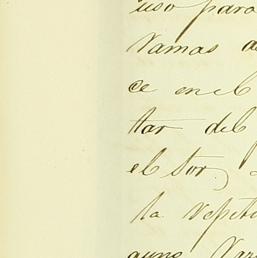 uso para
Vamas a
ce en el
ttar del
el Sor,
la repeti
auno Var